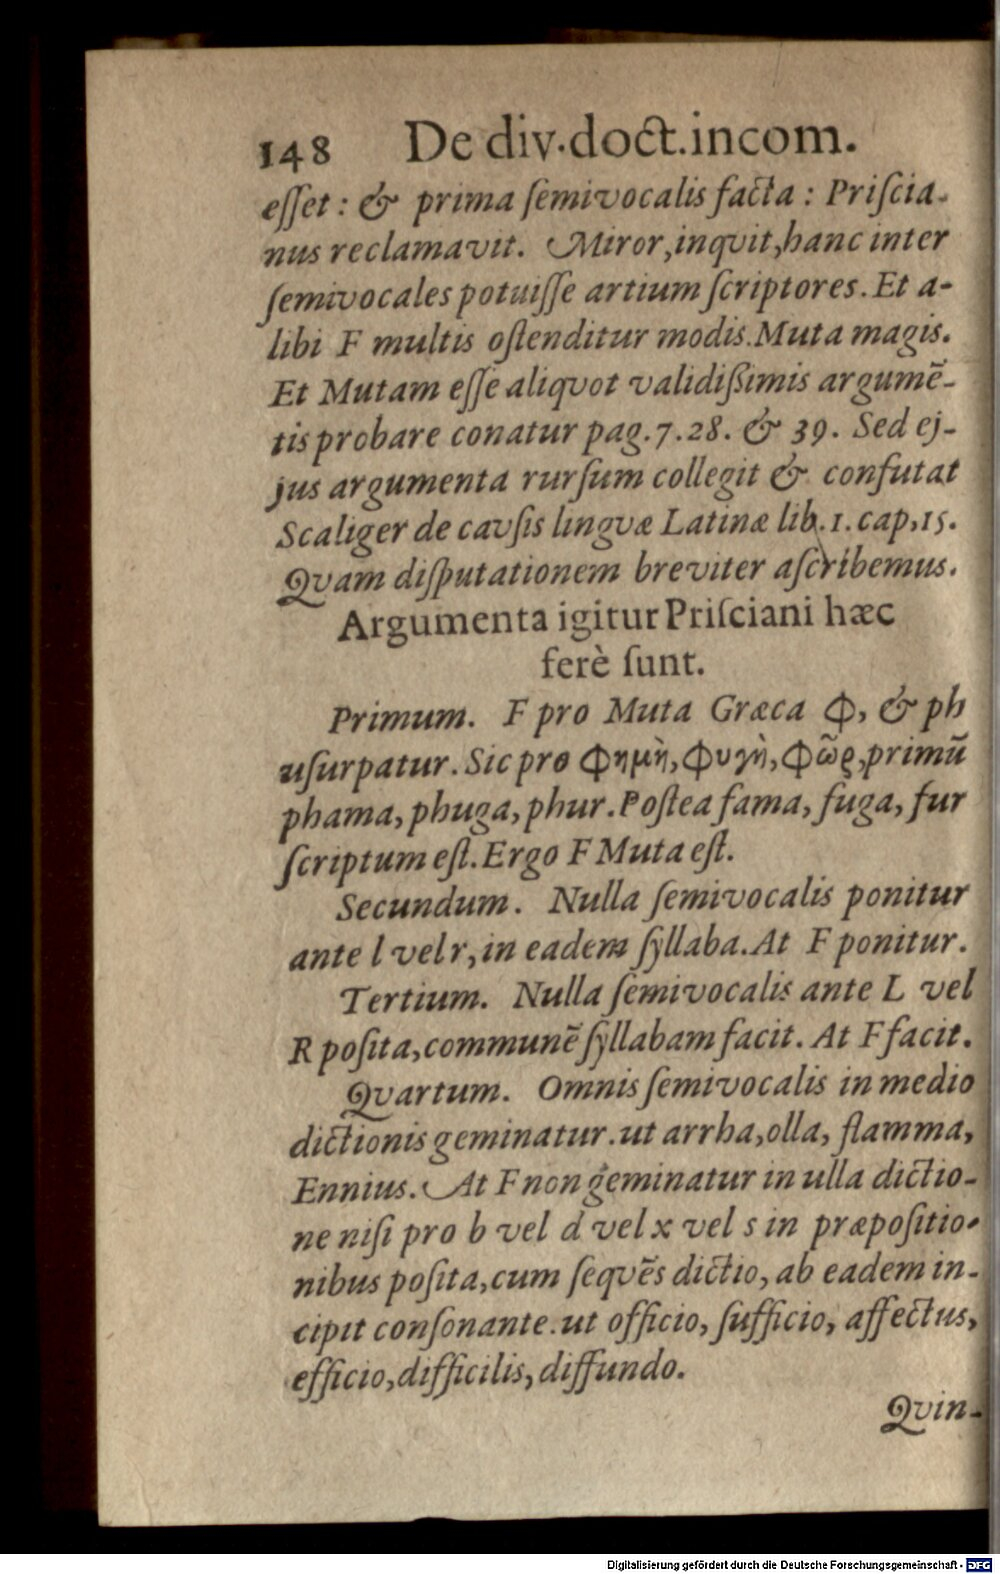 148 De div. doct. incom.
eſſet: & prima ſemivocalis facta: Priſcia-
nus reclamavit. Miror, inqvit, hanc inter
ſemivocales potuiſſe artium ſcriptores. Et a-
libi F multis oſtenditur modis. Muta magis.
Et Mutam eſſe aliqvot validißimis argumē-
tis probare conatur pag. 7. 28. & 39. Sed ej-
jus argumenta rurſum collegit & confutat
Scaliger de cavſis lingvæ Latinæ lib. 1. cap, 15.
Qvam diſputationem breviter aſcribemus.
Argumenta igitur Priſciani hæc
ferè ſunt.
Primum. F pro Muta Græca Φ, & ph
uſurpatur. Sic pro Φημὴ, Φυγὴ, Φῶρ, primū
phama, phuga, phur. Poſtea fama, fuga, fur
ſcriptum eſt. Ergo F Muta eſt.
Secundum. Nulla ſemivocalis ponitur
ante l vel r, in eadem ſyllaba. At F ponitur.
Tertium. Nulla ſemivocalis ante L vel
R poſita, communē ſyllabam facit. At F facit.
Qvartum. Omnis ſemivocalis in medio
dictionis geminatur. ut arrha, olla, flamma,
Ennius. At F non geminatur in ulla dictio-
ne niſi pro b vel d vel x vel s in præpoſitio-
nibus poſita, cum ſeqvēs dictio, ab eadem in-
cipit conſonante. ut officio, ſufficio, affectus,
efficio, difficilis, diffundo.
Qvin-
Digitalisierung gefördert durch die Deutsche Forschungsgemeinschaft - DFG